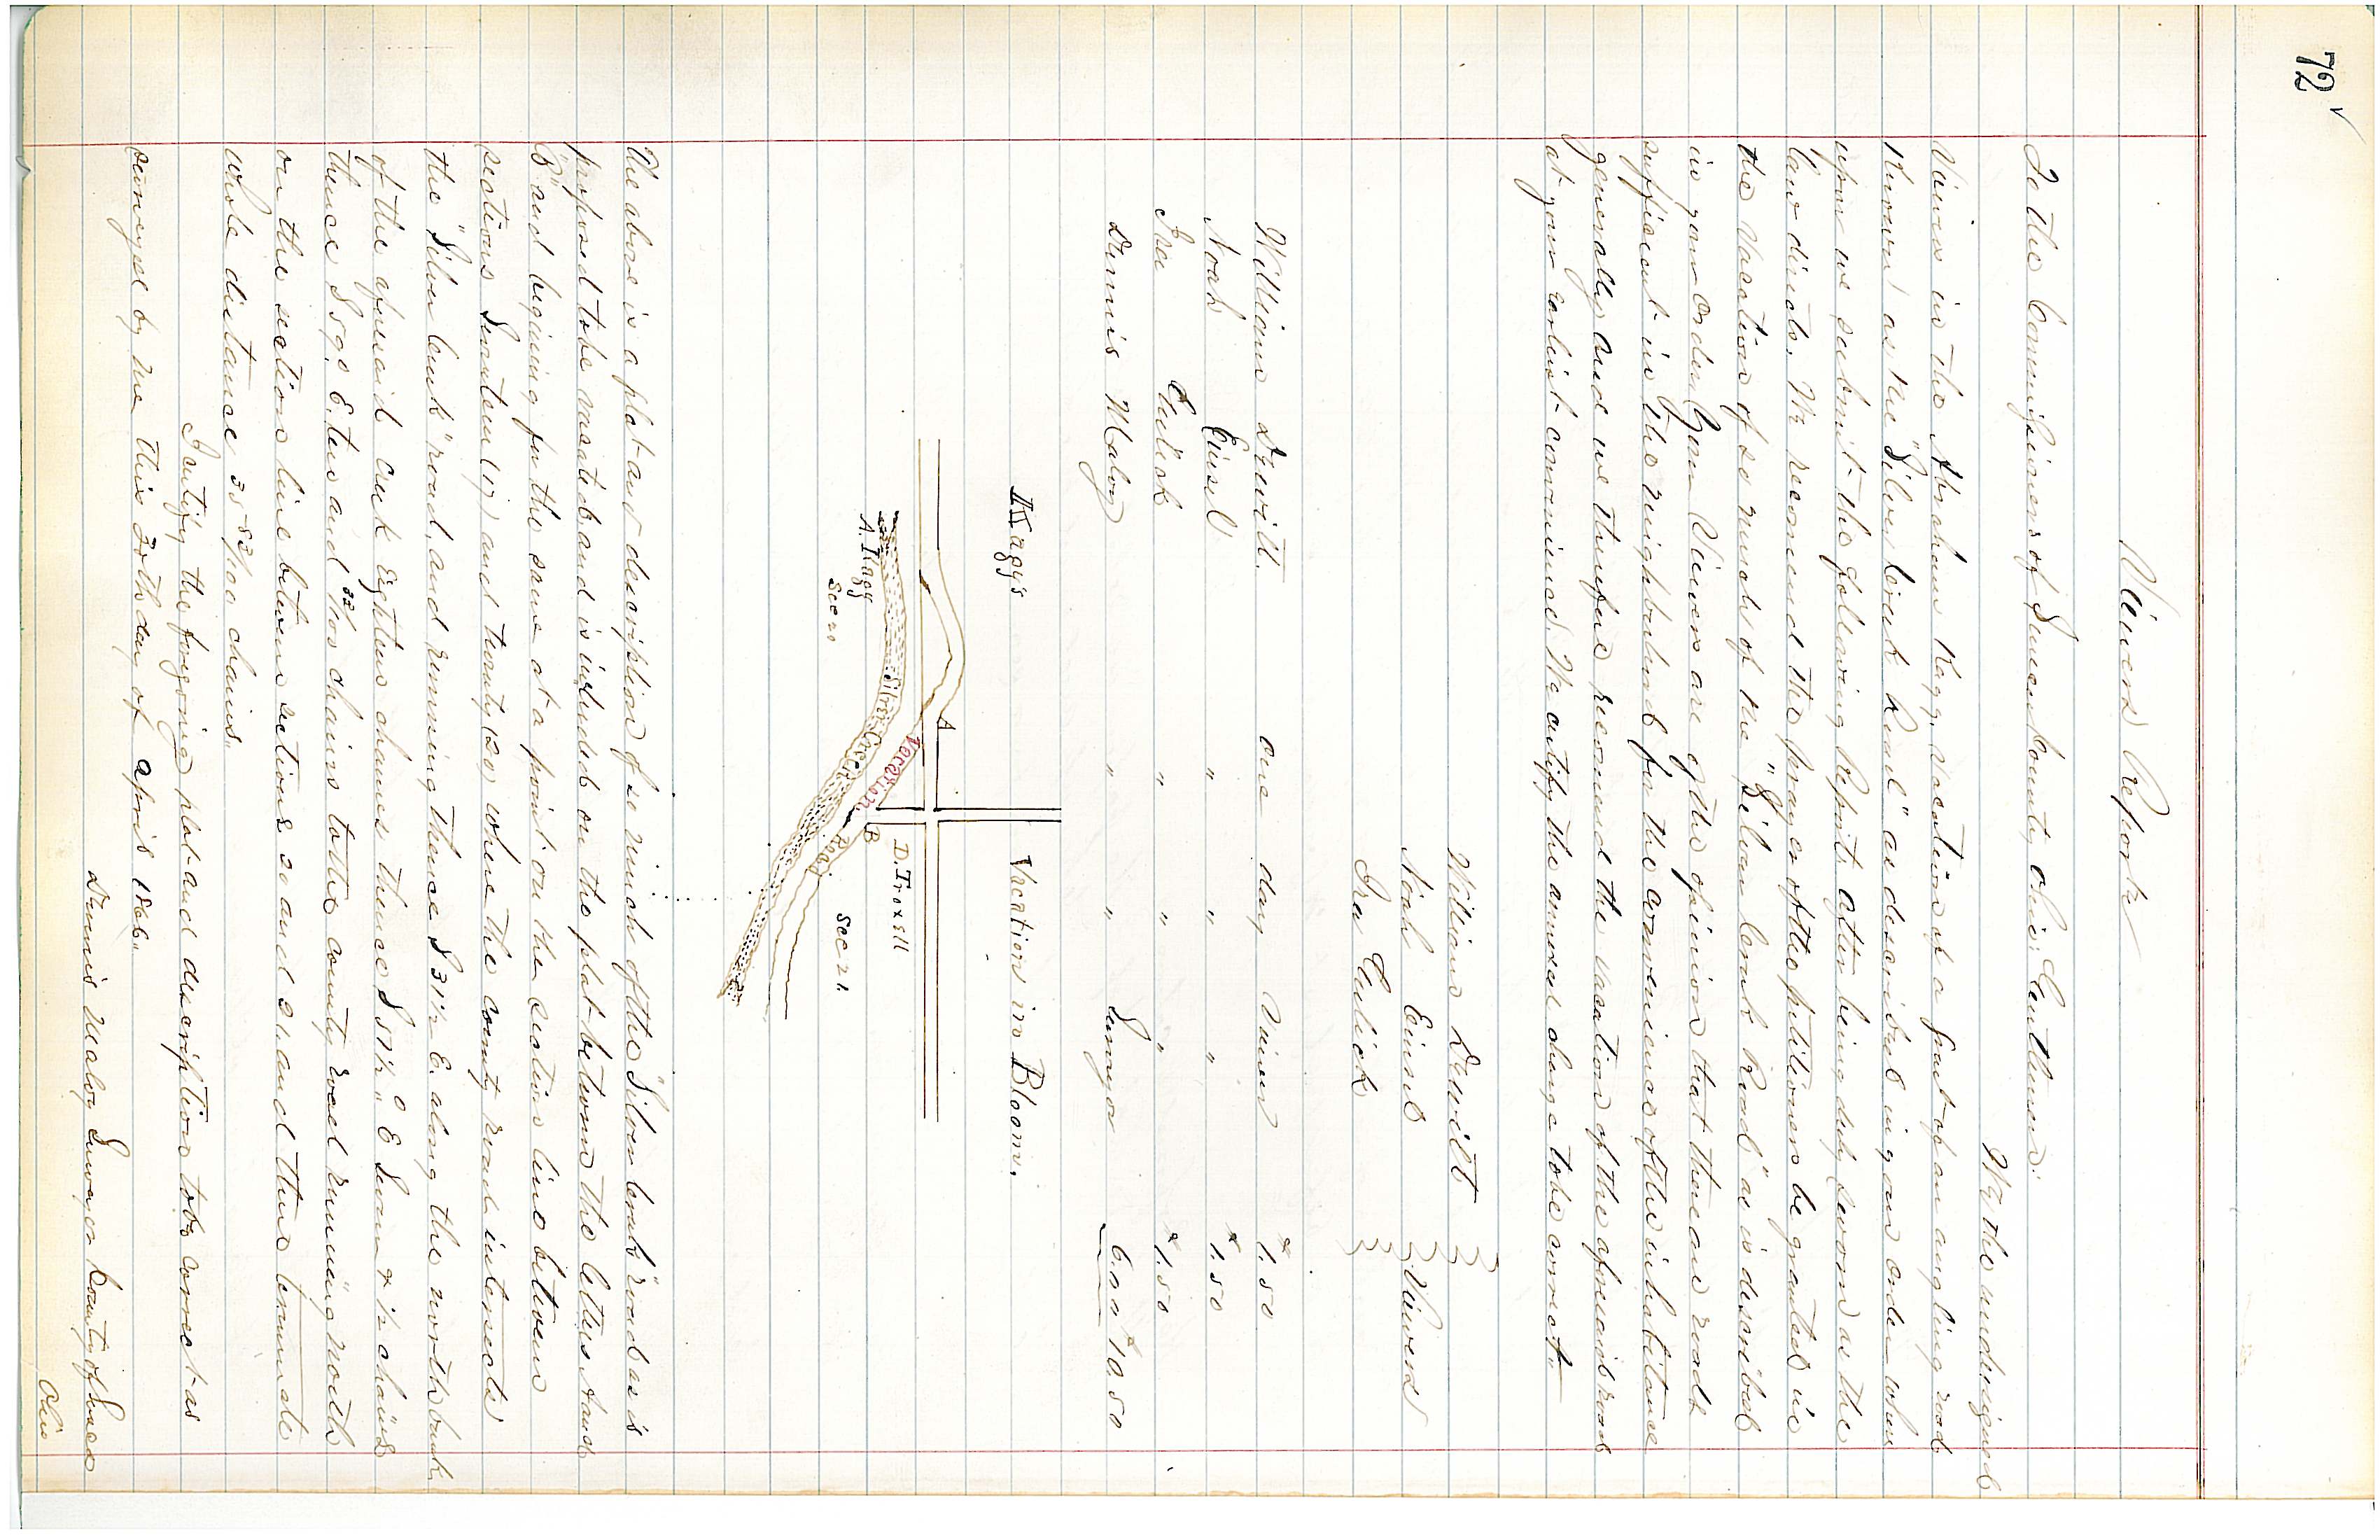 72
Viewers Report
To the Commissioners of Seneca County, Ohio: Gentlemen:
We the undersigned
Viewers in the Abraham Kagy, vacation of a part of an angling road
known as the "Silver Creek Road" as described in your order where
upon we submit the following Report, after being duly sworn as the
law directs. We recomend the prayer of the petitioners be granted in
the vacation of so much of the "Silver Creek Road" as is described
in your order, Your Viewers are of the opinion that there are roads
sufficient in the neighborhood for the convenience of the inhabitance
generally and we therefore recomend the vacation of the aforesaid road
at your earliest convenience. We certify the annexed charge to be correct.
William Dewitt
Noah Einsel } Viewers
Ira Culick
William Dewitt. one day Viewer $1.50
Noah Einsel " " " $1.50
Ira Culick " " " $1.50
Dennis Maloy " " Surveyor 6.00 $10.50
Kagy's Vacation in Bloom.
A
Vacation
B
D. Troxell
Silver Creek
Road
A. Kagy
Sec 20
Sec 21.
The above is a plat and description of so much of the "Silver Creek" road as is
proposed to be vacated and is included on the plat between the letters A and
"B" and begining for the same at a point on the section line between
sections Seventeen (17) and twenty (20) where the county road intersects
the "Silver Creek" road, and running thence S 31½ E. along the north bank
of the aforesaid creek Eighteen chains thence S 51½° E Seven & ½ chains
thence S 59° E. ten and 33/100 chains to the county road running north
on the section line between sections 20 and 21. and there terminate
whole distance 35 83/100 chains.
I certify the foregoing plat and description to be correct as
surveyed by me this 30th day of April 1866.
Dennis Maloy Surveyor County of Seneca
Ohio